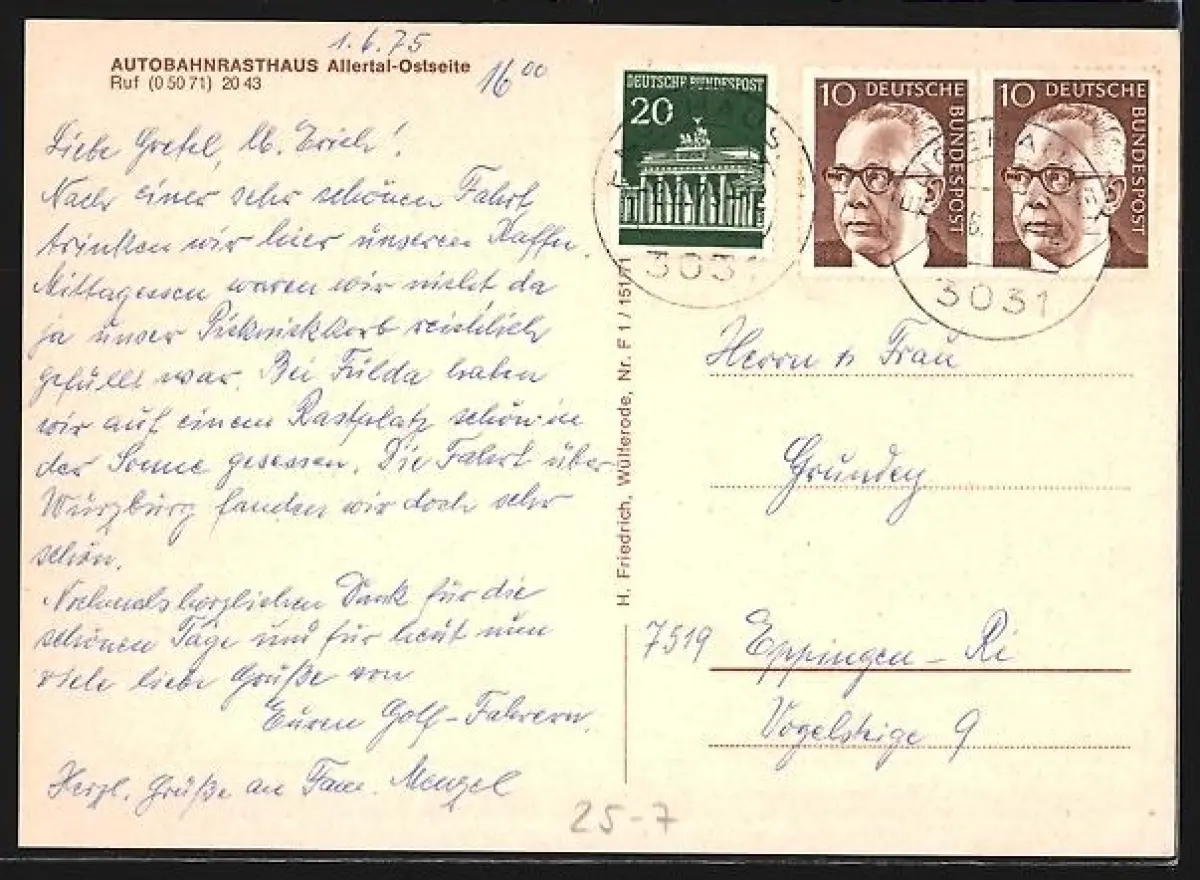 1.6.75
AUTOBAHNRASTHAUS Allertal-Ostseite
Ruf (0 50 71) 20 43
16 00
Liebe Gretel, lb. Erich!
Nach einer sehr schönen Fahrt
trinken wir hier unseren Kaffee.
Mittagessen waren wir nicht da
ja unser Picknickkorb reichlich
gefüllt war. Bei Fulda haben
wir auf einem Rastplatz schön in
der Sonne gesessen. Die Fahrt über
Würzburg fanden wir doch sehr
schön.
Nochmals herzlichen Dank für die
schönen Tage und für heut nun
viele liebe Grüße von
Euren Golf-Fahrern.
Herzl. Grüße an Fam. Menzel
H. Friedrich, Wülterode, Nr. F 1 / 151/71
DEUTSCHE BUNDESPOST
20
10 DEUTSCHE
BUNDESPOST
10 DEUTSCHE
BUNDESPOST
3031
3031
Herrn u Frau
Grundey
7519 Eppingen - Ri
Vogelsteige 9
25-7